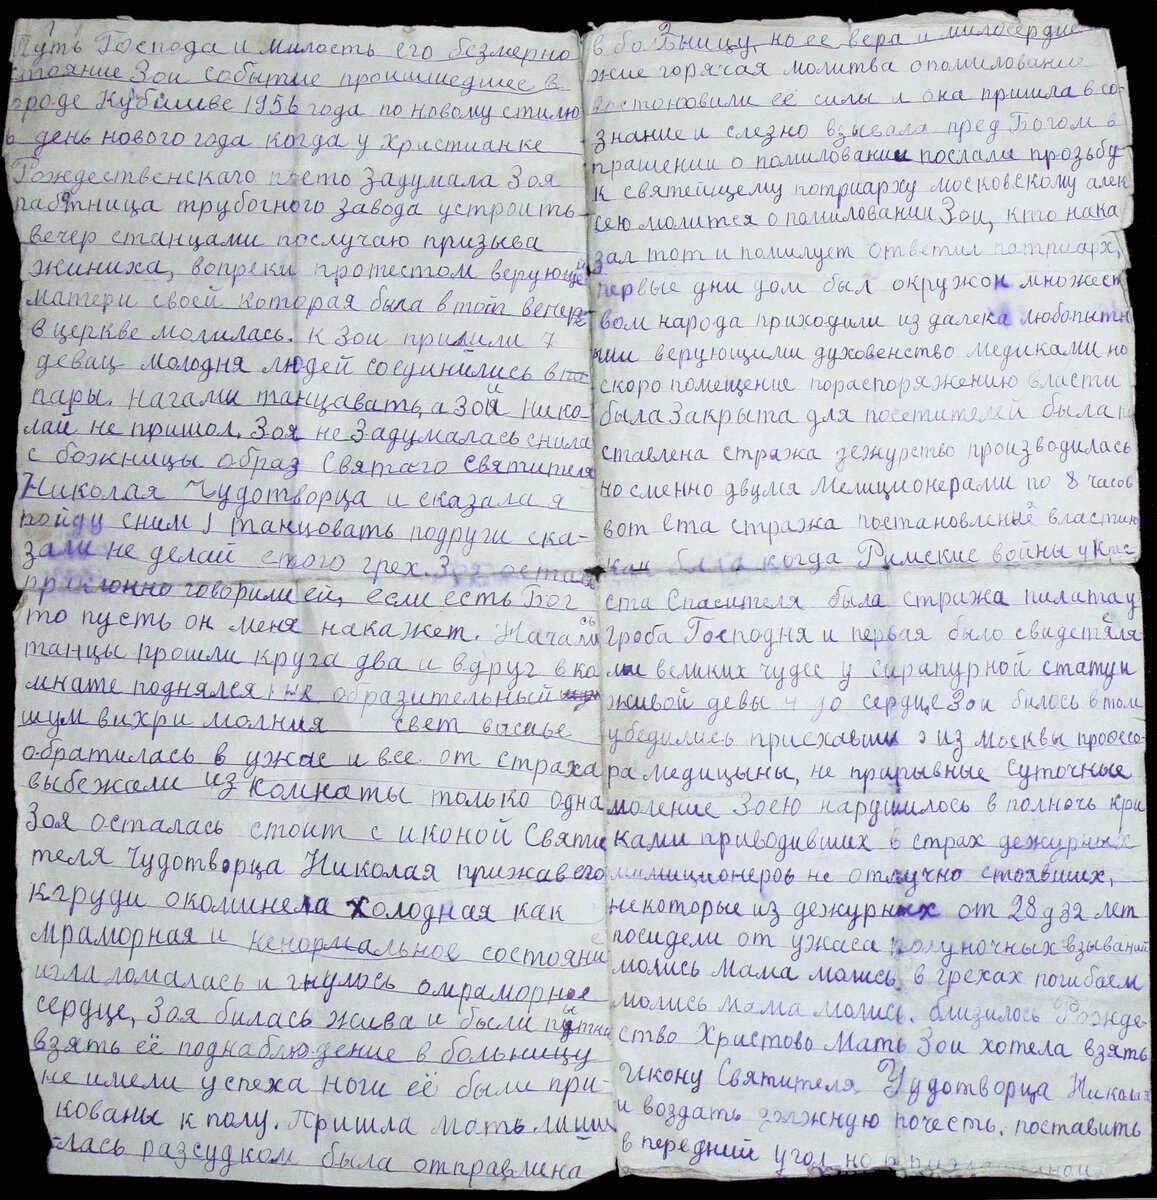 Путь Господа и милость его безмерно
стояние Зои событие происшедшее в
городе Кубишеве 1956 года по новому стилю
в день нового года когда у христианке
Рождественскаго посто задумала Зоя
работница трубочного завода устроить
вечер станцами послучаю призыва
жиниха, вопреки протестом верующей
матери своей которая была в тот вечер
в церкве молилась. К Зои пришли 7
девац молодня людей соединились в
пары. начали танцавать, а Зой Нико-
лай не пришол. Зоя не задумалась снила
с божницы образ Святаго Святителя
Николая Чудотворца и сказала я
пойду сним танцовать подруги ска-
зали не делай етого грех. Зоя
приклонно говорили ей, если есть Бог
то пусть он меня накажет. Начались
танцы прошли круга два и вдруг в ко
мнате поднялся образительный
шум вихри молния свет
обратилась в ужас и все от страха
выбежали из комнаты только одна
Зоя осталась стоит с иконой Святи
теля Чудотворца Николая прижав его
кгруди окоминела холодная как
мраморная и ненормальное состояние
игла ломалась и гнулось омраморное
сердце, Зоя билась жива и были пытки
взять её поднаблюдение в больницу
не имели успеха ноги её были при-
кованы к полу. Пришла мать лиши
лась разсудком была отправлина
в больницу, но ее вера и милосердие
жие горячая молитва о помиловании
востоновили её силы и она пришла в со-
знание и слезно взывала пред Богом о
прашении о помиловании послали прозьбу
к святейщему потриарху московскому алек
сею молится о помиловании Зои, кто нака
зал тот и помилует ответил патриарх,
первые дни дом был окружон множест
вом народа приходили из далека любопытн
ыи верующими духовенство медиками но
скоро помещение пораспоряжению власти
была закрыта для посетителей была по
ставлена стража дежурство производилась
носменно двумя Мелиционерами по 8 часов
вот ета стража постановленые властию
как была когда Римские войны у Крес
ста Спасителя была стража пилата у
гроба Господня и первая было свидетеля-
ми великих чудес у сарапурной статуи
живой девы до сердце Зои билось в том
убедились приехавши из москвы професо-
ра медицыны, не прарывные суточные
моление Зоею нарушилось в полночь кри
ками приводивших в страх дежурных
милиционеров не отлучно стоявших,
некоторые из дежурных от 28 д 32 лет
посидели от ужаса полуночных взываний
молись мама молись в грехах погибаем
молись мама молись. близилось Рожде-
ство Христово Мать Зои хотела взять
икону Святителя Чудотворца Николая
и воздать должную почесть. поставить
в передний угол но